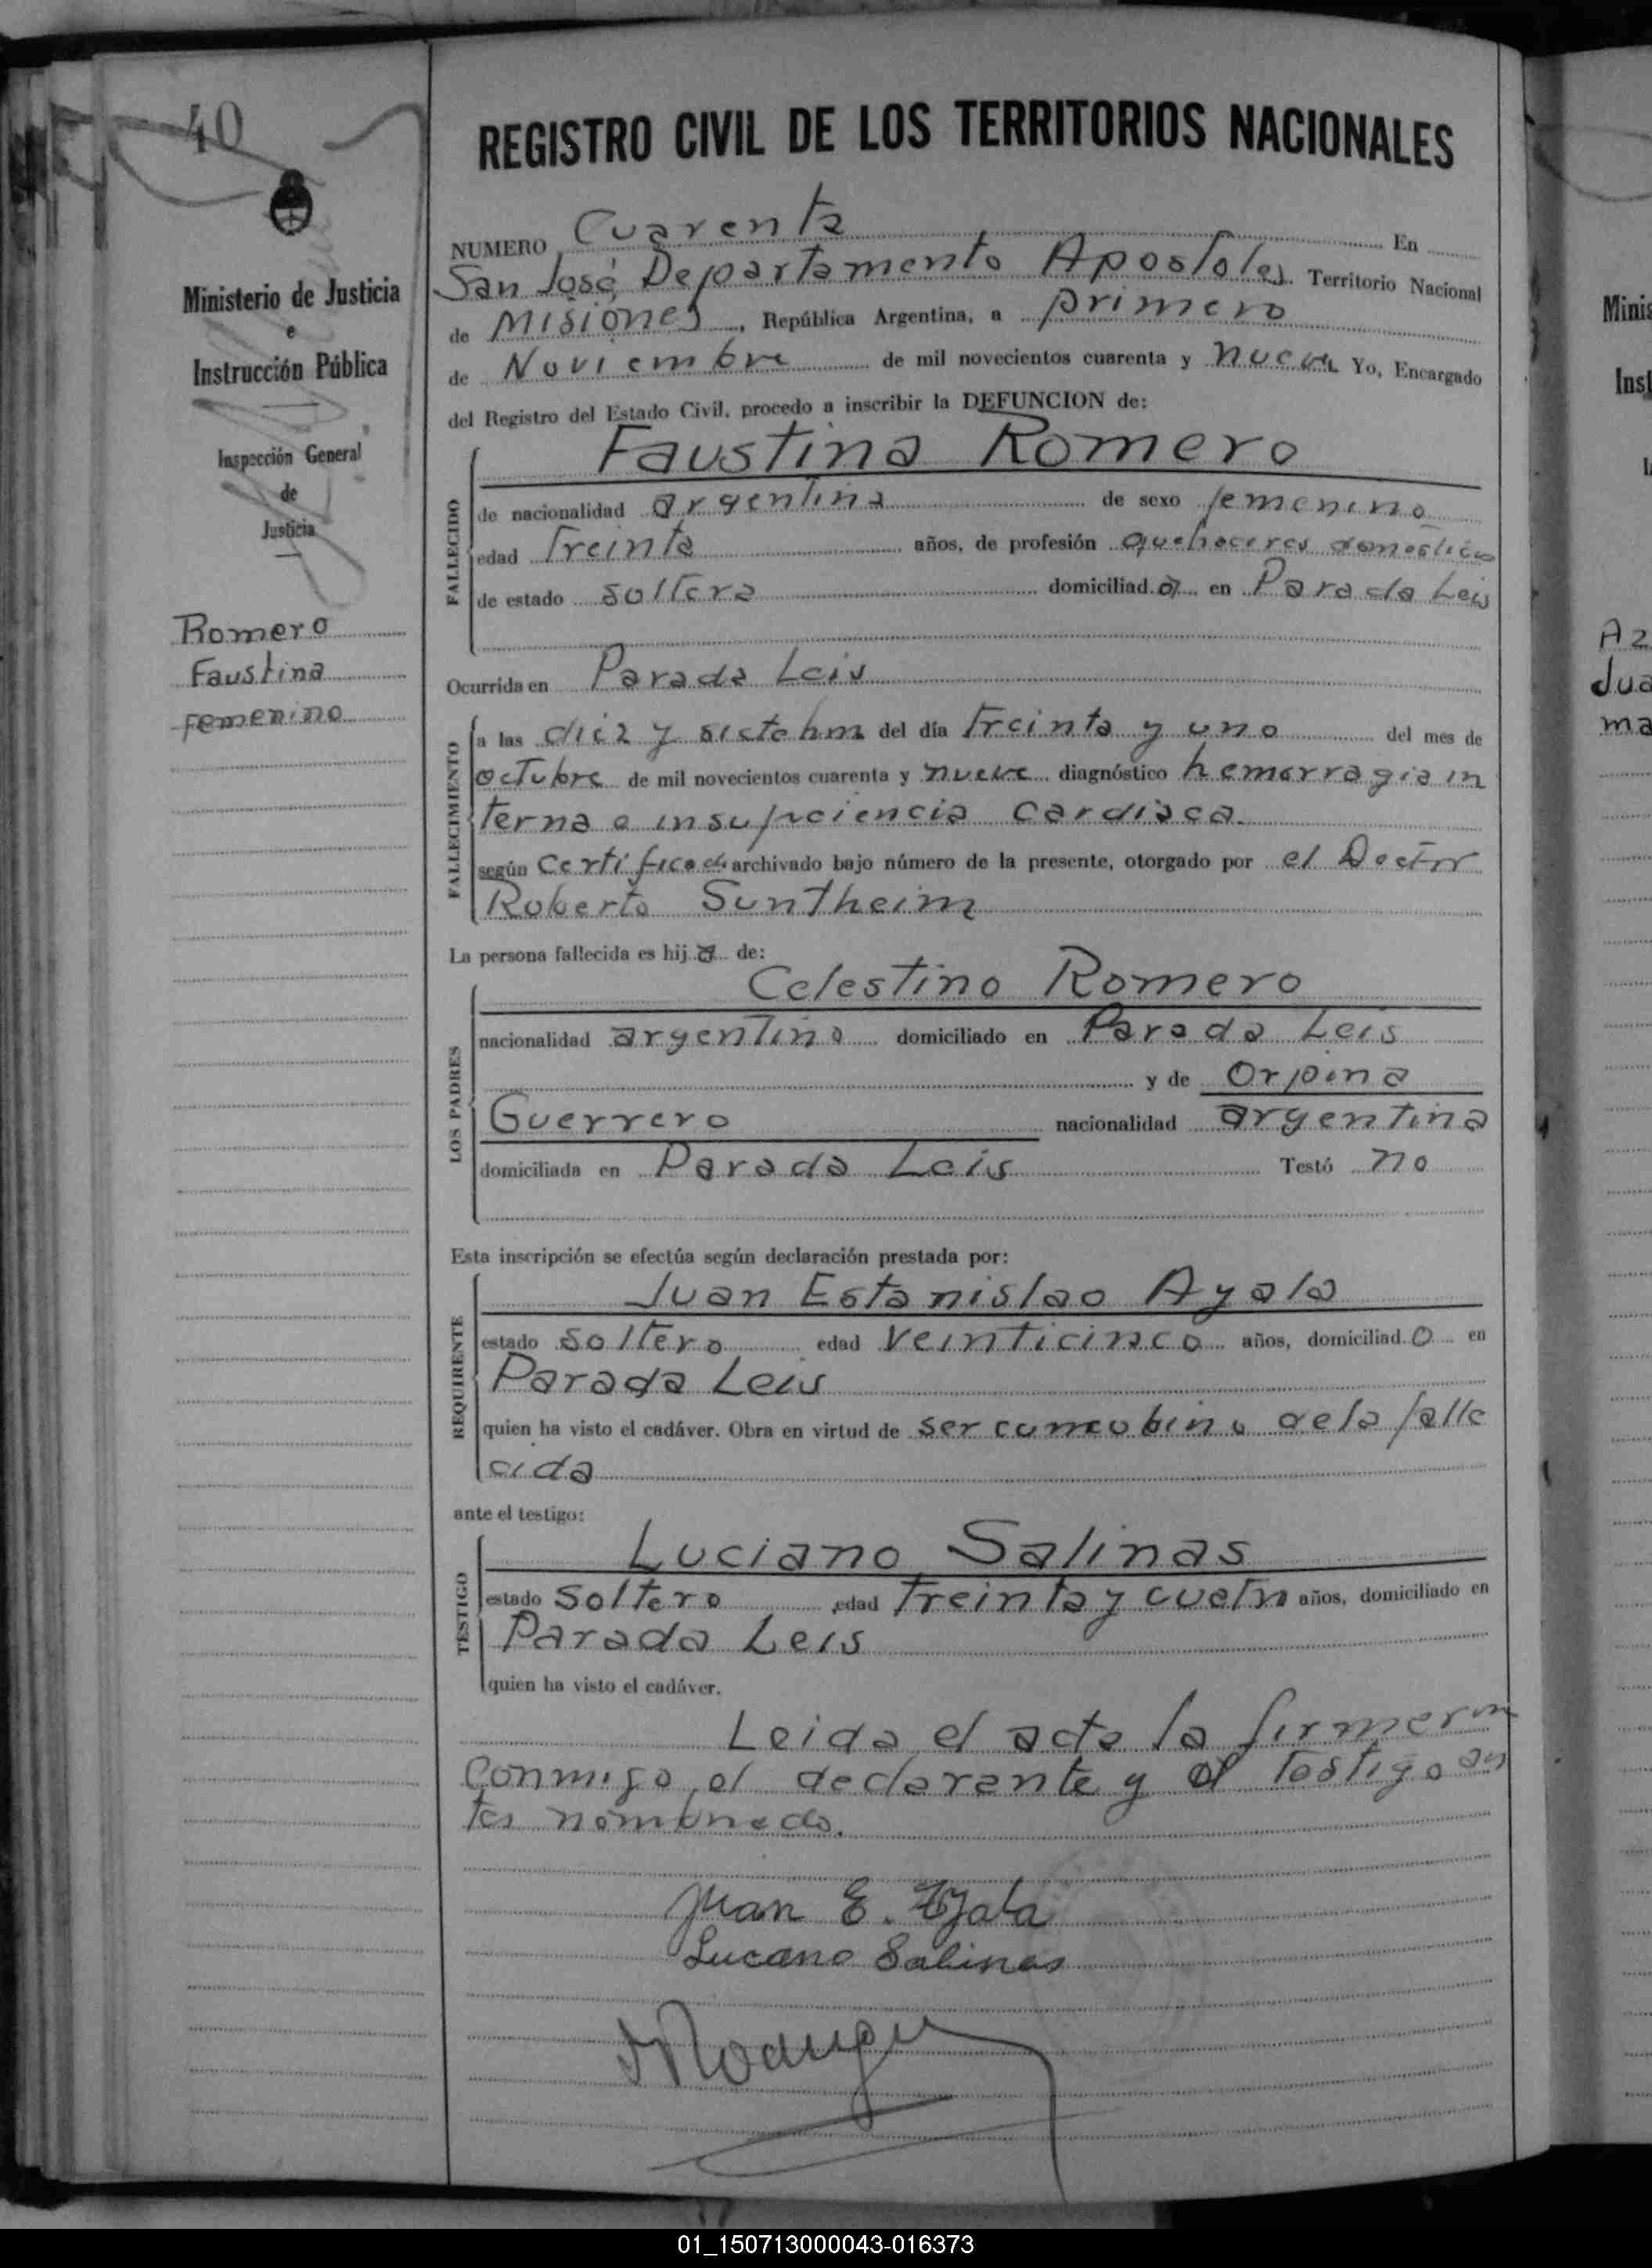 40
Ministerio de Justicia
e
Instrucción Pública
Inspección General
de
Justicia
Romero
Faustina
femenino
REGISTRO CIVIL DE LOS TERRITORIOS NACIONALES
NUMERO Cuarenta En
San José Departamento Apostoles Territorio Nacional
de Misiones, República Argentina, a primero
de Noviembre de mil novecientos cuarenta y nueve Yo, Encargado
del Registro del Estado Civil, procedo a inscribir la DEFUNCION de:
FALLECIDO
Faustina Romero
de nacionalidad argentina de sexo femenino
edad Treinta años, de profesión quehaceres domesticos
de estado soltera domiciliad a en Parada Leis
Ocurrida en Parada Leis
FALLECIMIENTO
a las diez y siete hrs del día treinta y uno del mes de
octubre de mil novecientos cuarenta y nueve diagnóstico hemorragia in
terna e insuficiencia cardiaca
según certificado archivado bajo número de la presente, otorgado por el Doctor
Roberto Suntheim
La persona fallecida es hij a de:
LOS PADRES
Celestino Romero
nacionalidad argentino domiciliado en Parada Leis
y de Orpina
Guerrero nacionalidad argentina
domiciliada en Parada Leis Testó no
Esta inscripción se efectúa según declaración prestada por:
REQUIRENTE
Juan Estanislao Ayala
estado soltero edad veinticinco años, domiciliad o en
Parada Leis
quien ha visto el cadáver. Obra en virtud de ser concubino de la falle
cida
ante el testigo:
TESTIGO
Luciano Salinas
estado soltero edad treinta y cuatro años, domiciliado en
Parada Leis
quien ha visto el cadáver.
Leida el acta la firmaron
conmigo el declarante y el testigo an
tes nombrado.
Juan E. Ayala
Lucano Salinas
Minis
Inst
Az
Jua
ma
01_150713000043-016373